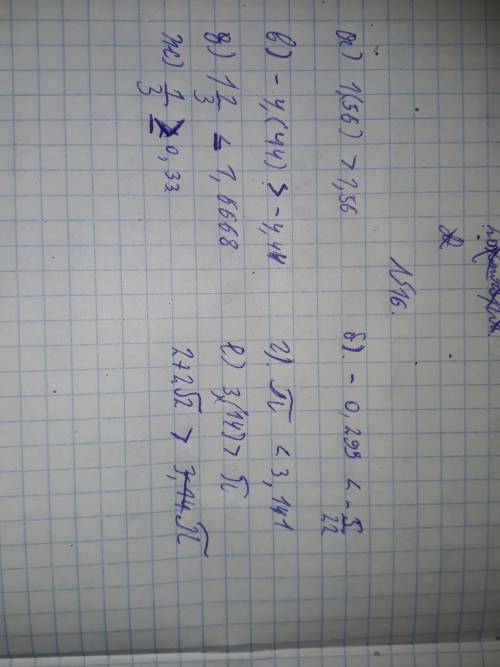 №16.
а) 1,(56) > 1,56 б). - 0,299 < - 5/22
в) - 4,(44) > -4,44 г). π < 3,141
д) 1 2/3 < 1,6668 е) 3,(14) > π
ж) 1/3 > 0,33 2+2√2 > π